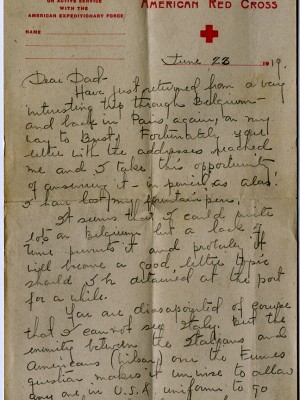 ON ACTIVE SERVICE
WITH THE
AMERICAN EXPEDITIONARY FORCE
AMERICAN RED CROSS
NAME
June 28 1919.
Dear Dad-
Have just returned from a very
interesting trip through Belgium
and back in Paris again, on my
way to Brest. Fortunately your
letter with the addresses reached
me and I take this opportunity
of answering it - in pencil as alas!
I have lost my fountain pen.
It seems that I could write
lots on Belgium but a lack of
time prevents it and probably it
will become a good letter topic
should I be detained at the port
for a while.
You are dissapointed of course
that I cannot see Italy. But the
enmity between the Italians and
Americans (Wilson) over the Fiumes
question makes it unwise to allow
any one in U.S.A uniform to go